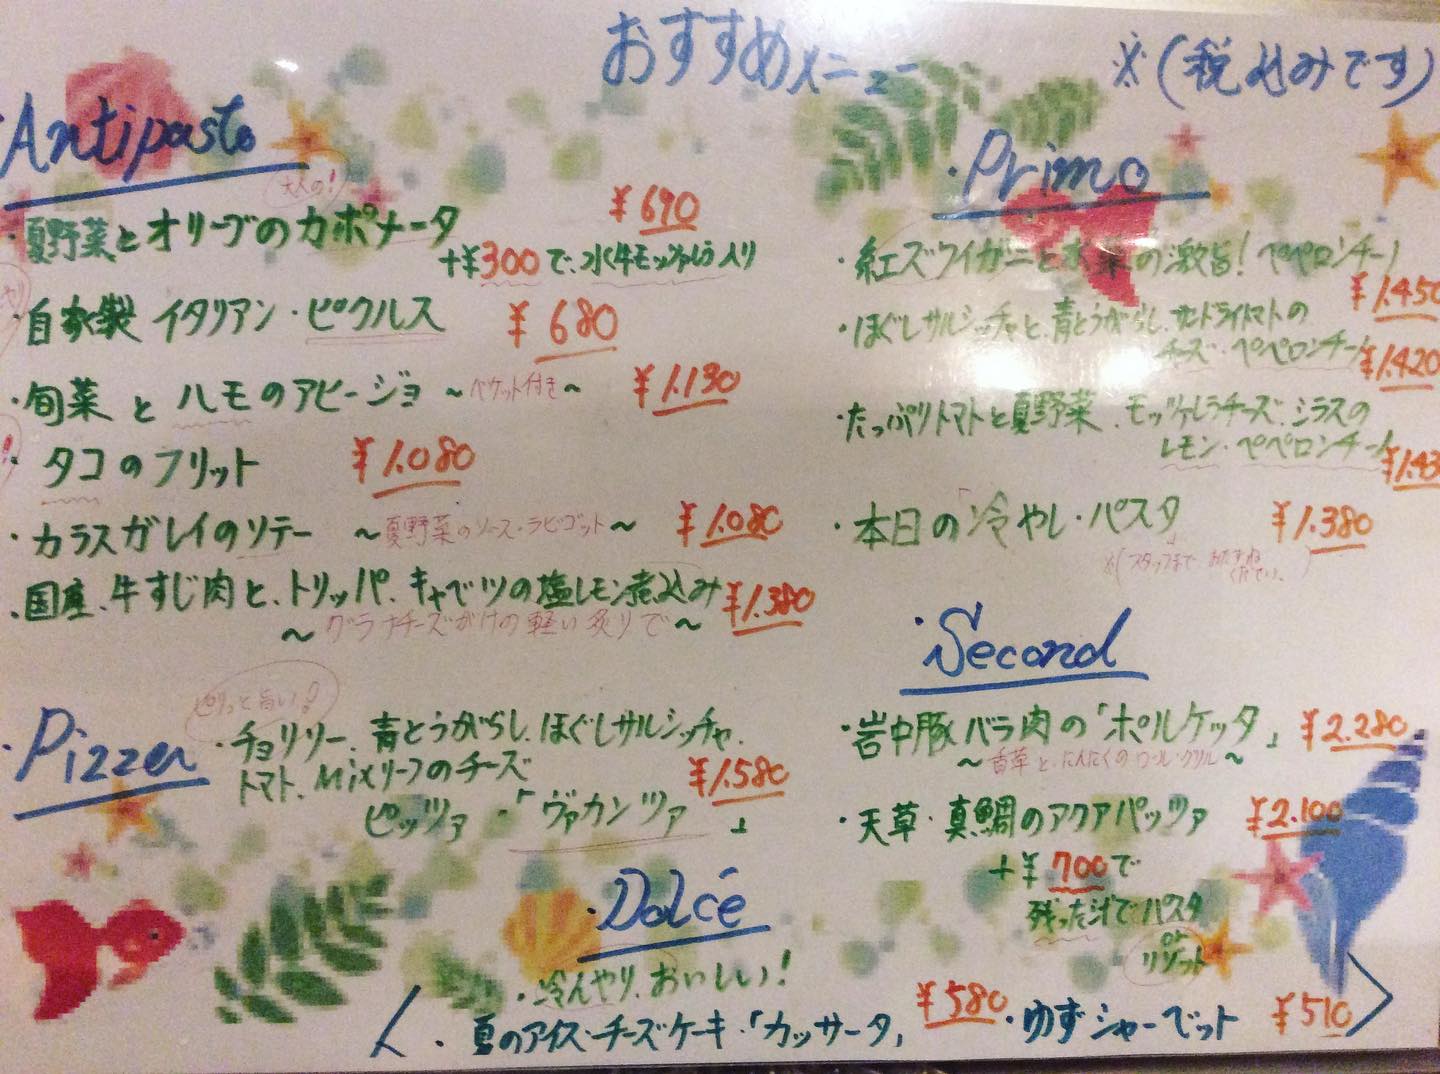 おすすめメニュー
※(税込みです)
・Antipasto
大人の!
・夏野菜とオリーブのカポナータ ¥690
+¥300で、水牛モッツァレラ入り
・自家製 イタリアン・ピクルス ¥680
・旬菜とハモのアヒージョ ~バケット付き~ ¥1.130
・タコのフリット ¥1.080
・カラスガレイのソテー ~夏野菜のソース・ラビゴット~ ¥1.080
・国産、牛すじ肉と、トリッパ、キャベツの塩レモン煮込み ¥1.380
~グラナチーズがけの軽い炙りで~
・Pizzer
ピリっと旨い!
・チョリソー、青とうがらし、ほぐしサルシッチャ、
トマト、Mixリーフのチーズ ¥1.580
ピッツァ・「ヴァカンツァ」
・Primo
・紅ズワイガニと水菜の激旨!ペペロンチーノ
¥1.450
・ほぐしサルシッチャと、青とうがらし、サンドライトマトの
チーズ・ペペロンチーノ ¥1.420
・たっぷりトマトと夏野菜、モッツァレラチーズ、シラスの
レモン・ペペロンチーノ ¥1.43
・本日の「冷やし・パスタ」 ¥1.380
※(スタッフまでおたずねください。)
・Second
・岩中豚バラ肉の「ポルケッタ」 ¥2.280
~香草と、にんにくのロール・グリル~
・天草・真鯛のアクアパッツァ ¥2.100
+¥700で
残った汁でパスタ
or
リゾット
・Dolcé
・冷んやり、おいしい!
・夏のアイス・チーズケーキ・「カッサータ」 ¥580
・ゆずシャーベット ¥510